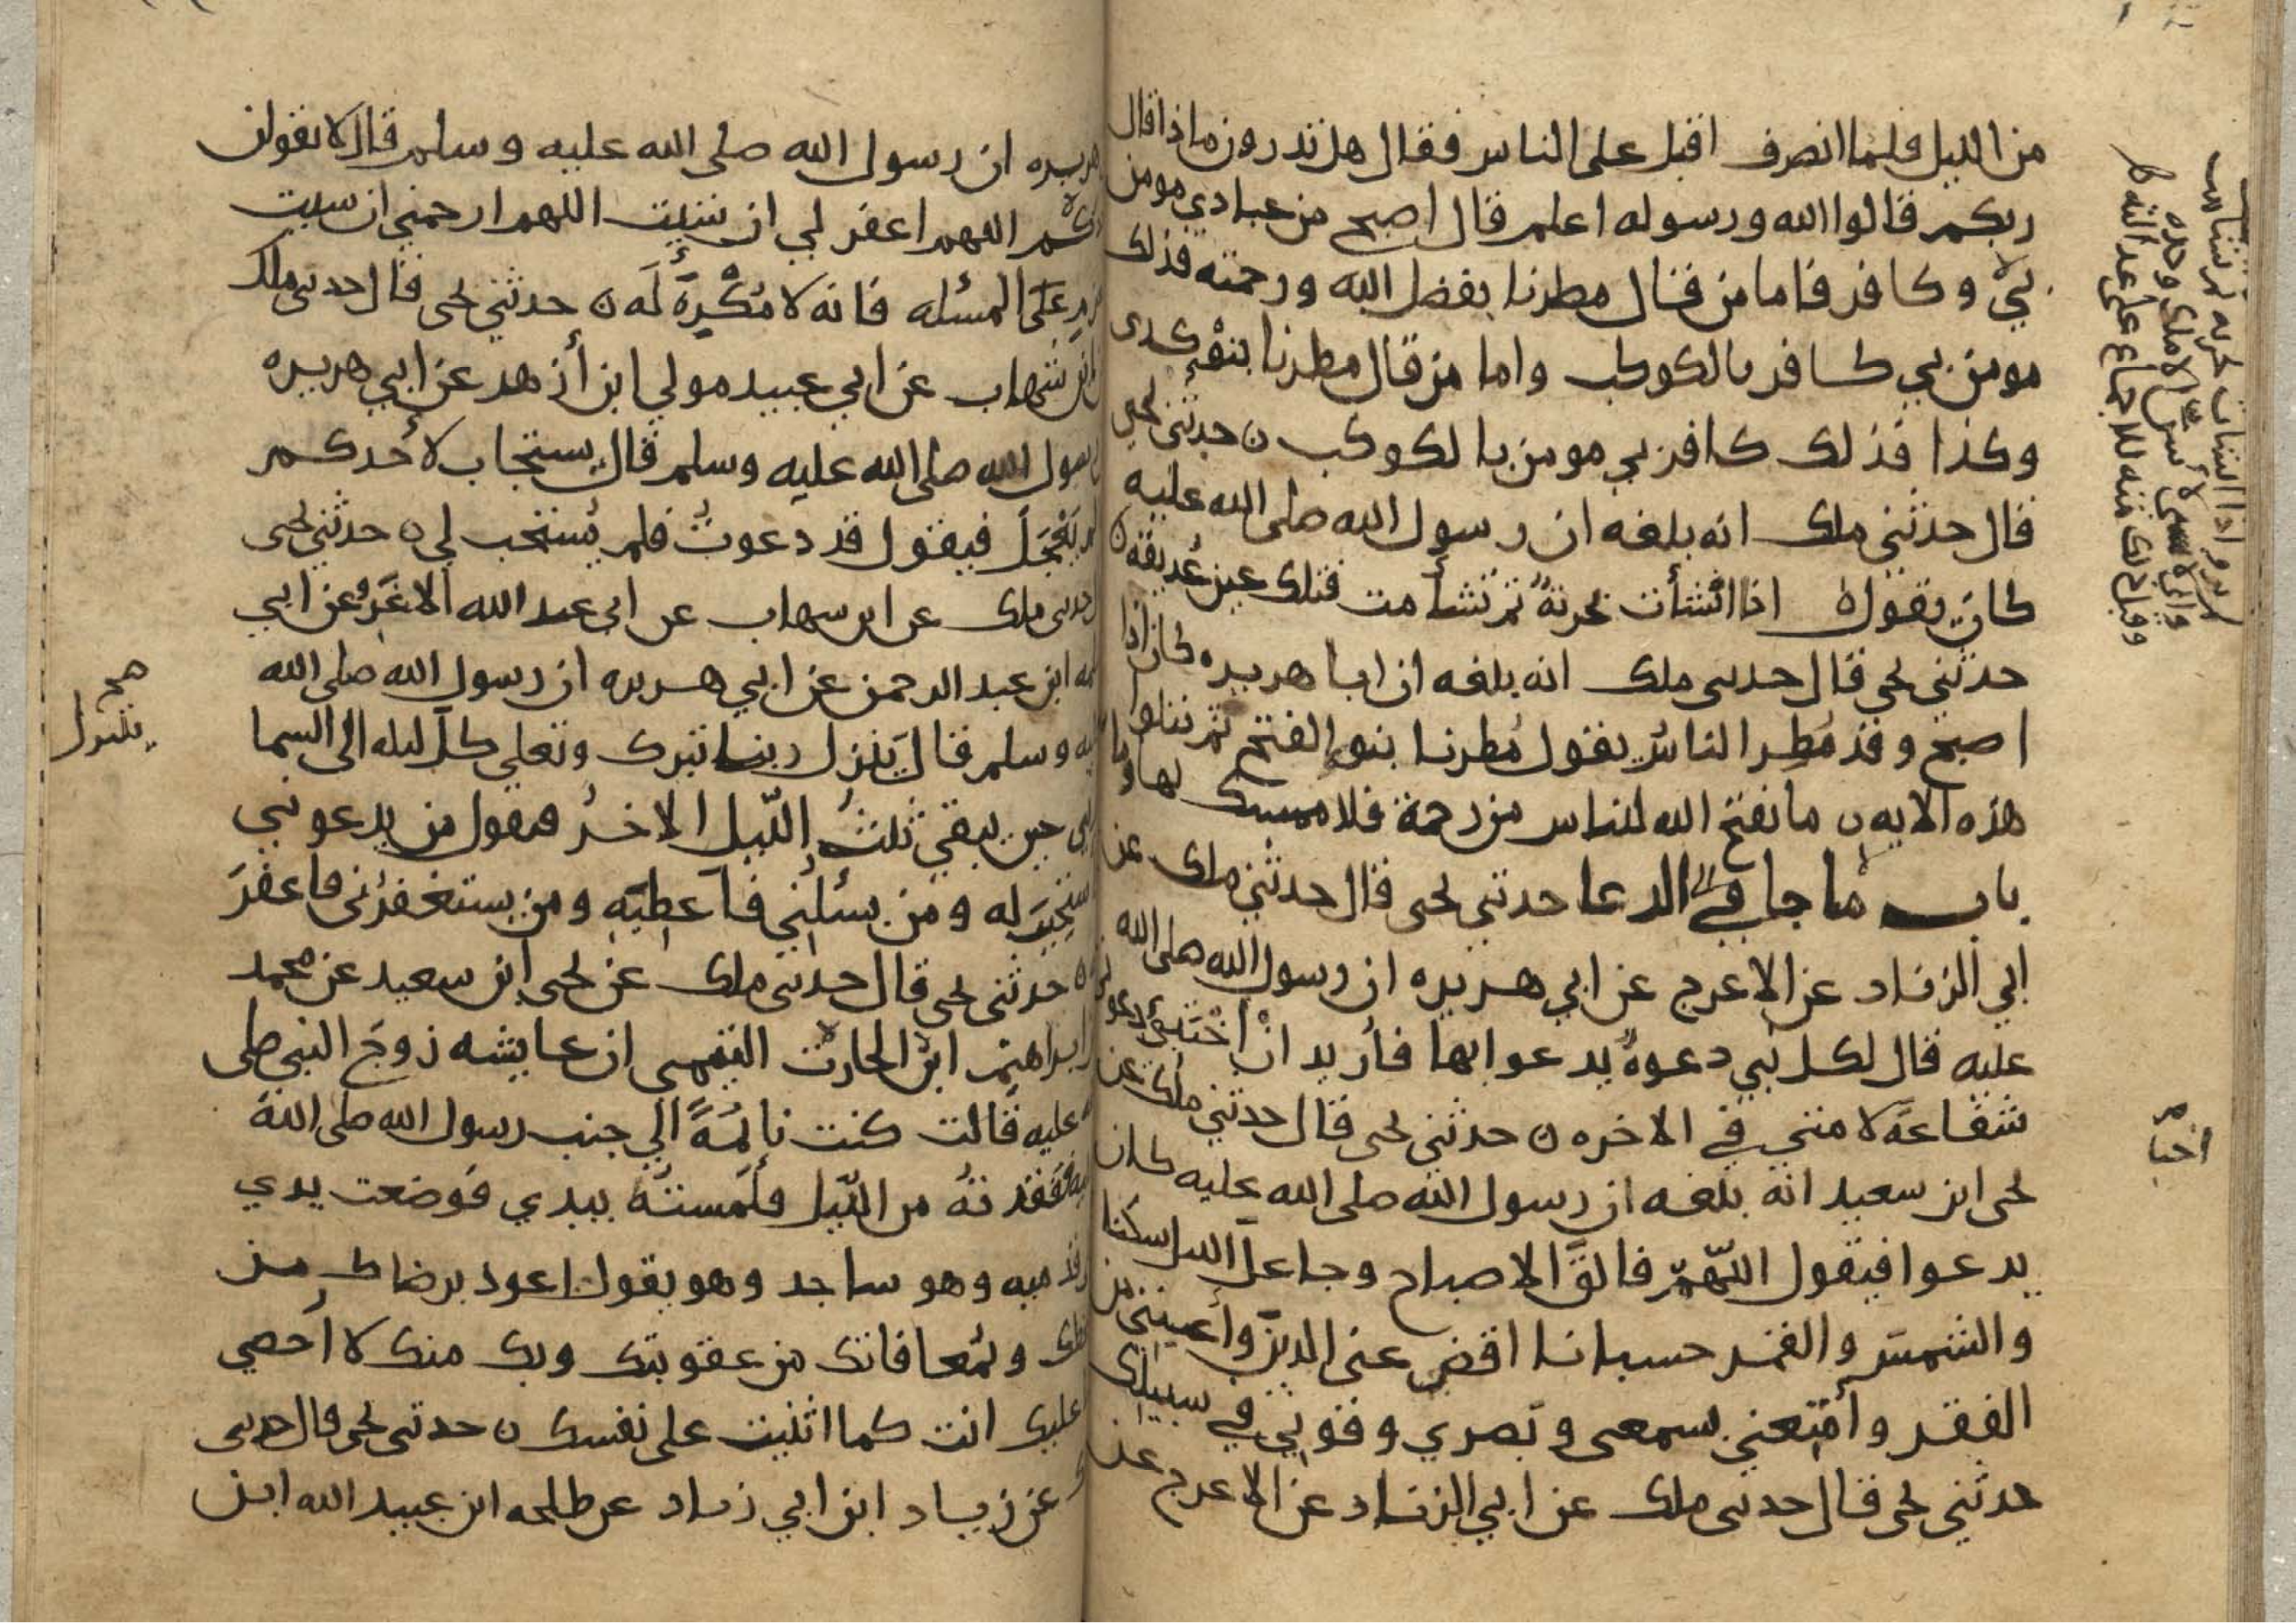 من الليل فلما انصرف اقبل على الناس فقال هل تدرون ماذا قال
ربكم قالوا الله ورسوله اعلم قال اصبح من عبادي مومن
بي وكافر فاما من قال مطرنا بفضل الله ورحمته فذلك
مومن بي كافر بالكوكب واما من قال مطرنا بنوء كدى
وكذا فذلك كافر بي مومن بالكوكب ن حدثني يحيى
قال حدثني ملك انه بلغه ان رسول الله صلى الله عليه
كان يقول اذا انشأت بحرية ثم تشأمت فتلك عين غديقة ن
حدثني يحيى قال حدثني ملك انه بلغه ان ابا هريره كان اذا
اصبح وقد مطر الناس يقول مطرنا بنوء الفتح ثم يتلوا
هذه الايه ن ما يفتح الله للناس من رحمة فلا ممسك لها وما
باب ما جا في الدعا حدثني يحيى قال حدثني ملك عن
ابي الزناد عن الاعرج عن ابي هريره ان رسول الله صلى الله
عليه قال لكل نبي دعوة يدعوا بها فأريد ان أختبئ دعوتي
شفاعة لامتي في الاخره ن حدثني يحيى قال حدثني ملك عن
يحيى ابن سعيد انه بلغه ان رسول الله صلى الله عليه كان
يدعوا فيقول اللهم فالق الاصباح وجاعل الليل سكنا
والشمس والقمر حسبانا اقض عني الدين وأغنني من
الفقر وأمتعني بسمعي وبصري وقوتي في سبيلك
حدثني يحيى قال حدثني ملك عن ابي الزناد عن الاعرج عن
اختبا
هريره ان رسول الله صلى الله عليه وسلم قال لا يقولن
اللهم اغفر لي ان شيت اللهم ارحمني ان شيت
على المسئله فانه لا مكره له ن حدثني يحيى قال حدثني ملك
ابن شهاب عن ابي عبيد مولي ابن أزهر عن ابي هريره
رسول الله صلى الله عليه وسلم قال يستجاب لأحدكم
يعجل فيقول قد دعوت فلم يستجب لي ن حدثني يحيى
حدثني ملك عن ابن شهاب عن ابي عبد الله الاغر وعن ابي
ابن عبد الرحمن عن ابي هريره ان رسول الله صلى الله
وسلم قال ينزل ربنا تبرك وتعلي كل ليله الى السما
حين يبقي ثلث الليل الاخر فيقول من يدعوني
له ومن يسئلني فأعطيه ومن يستغفرني فاغفر
حدثني يحيى قال حدثني ملك عن يحيى ابن سعيد عن محمد
ابراهيم ابن الحارث التيمي ان عايشه زوج النبي صلى
عليه قالت كنت نائمة الي جنب رسول الله صلى الله
ففقدته من الليل فلمسته بيدي فوضعت يدي
قدميه وهو ساجد وهو يقول اعوذ برضاك من
وبمعافاتك من عقوبتك وبك منك لا أحصي
عليك انت كما اثنيت على نفسك ن حدثني يحيى قال حدثني
عن زياد ابن ابي زياد عن طلحه ابن عبيد الله ابن
صح
يتنزل